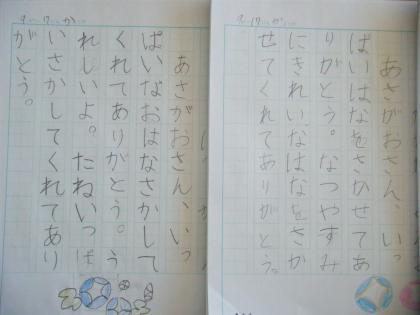 9．17．か．
あさがおさん、いっ
ぱいはなをさかせてあ
りがとう。なつやすみ
にきれいなはなをさか
せてくれてありがとう。
9．17．か．
あさがおさん、いっ
ぱいなおはなさかして
くれてありがとう。う
れしいよ。たねいっぱ
いさかしてくれてあり
がとう。